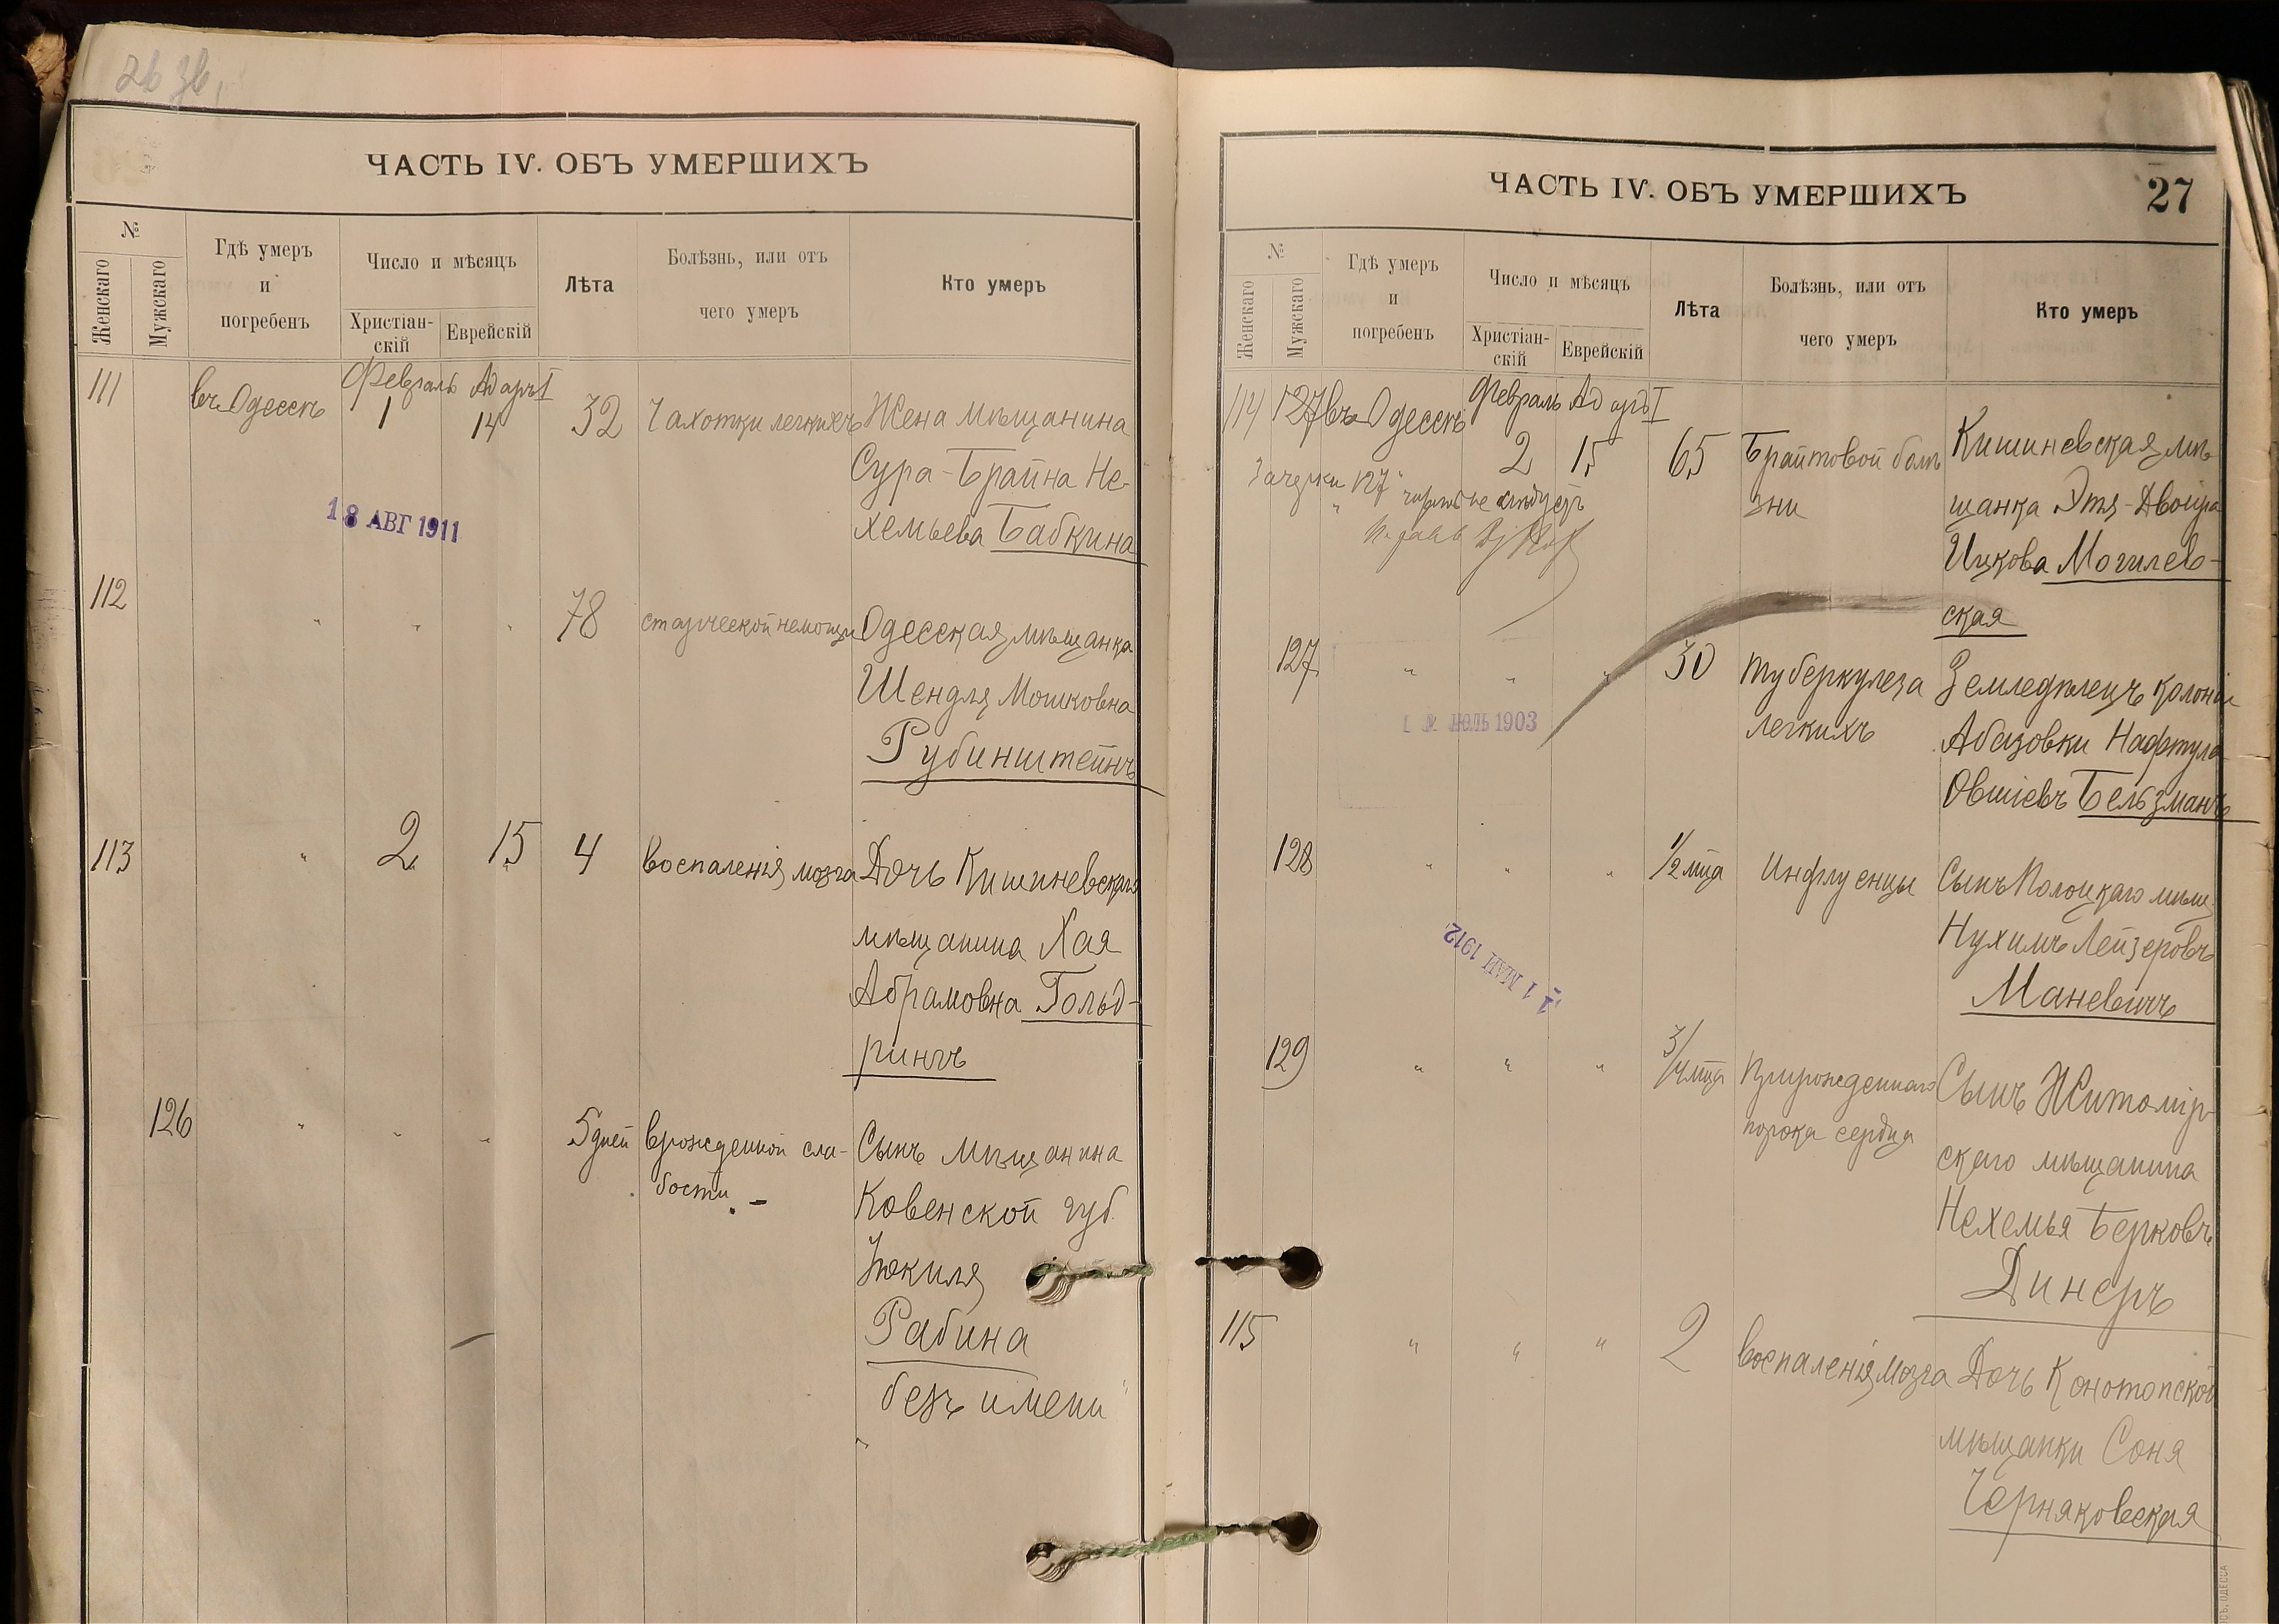 26 зв.
ЧАСТЬ IV. ОБЪ УМЕРШИХЪ
№
Женскаго
Мужскаго
Гдѣ умеръ
и
погребенъ
Число и мѣсяцъ
Христіан-
скій
Еврейскій
Лѣта
Болѣзнь, или отъ
чего умеръ
Кто умеръ
111
въ Одессѣ
Февраль Адаръ I
1 14
32
Чахотки легкихъ
Жена мѣщанина
Сура-Брайна Не-
хемьева Бабкина
18 АВГ 1911
112
" " "
78
старческой немощи
Одесская мѣщанка
Шендля Мошковна
Рубинштейнъ
113
"
2 15
4
воспаленія мозга
Дочь Кишиневскаго
мѣщанина Хая
Абрамовна Гольд-
рингъ
126
" " "
5 дней
врожденной сла-
бости. -
Сынъ мѣщанина
Ковенской губ.
Рабина
"безъ имени"
ЧАСТЬ IV. ОБЪ УМЕРШИХЪ
27
№
Женскаго
Мужскаго
Гдѣ умеръ
и
погребенъ
Число и мѣсяцъ
Христіан-
скій
Еврейскій
Лѣта
Болѣзнь, или отъ
чего умеръ
Кто умеръ
114 127 въ Одессѣ
Февраль Адаръ I
2 15
65
Брайтовой болѣ
зни
Кишиневская мѣ
щанка Этя-Двойра
Ицкова Могилев-
ская
127
" " "
30
туберкулеза
легкихъ
Земледѣлецъ колоніи
Абазовки Нафтула
Овшіевъ Бельзманъ
1903
128
" " "
1/2 мца
Инфлуенцы
Сынъ Полоцкаго мѣщ.
Нухимъ Лейзеровъ
Маневичъ
11 МАЙ 1912
129
" " "
3/4 мца
порока сердца
Сынъ Житомір-
скаго мѣщанина
Нехемья Берковъ
Динеръ
115
" " "
2
воспаленія мозга
Дочь Конотопской
мѣщанки Соня
Черняковская